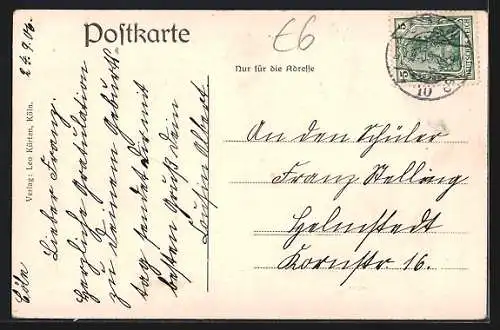 Postkarte
Nur für die Adresse
Verlag: Leo Kürten, Köln.
Cöln 23.9.10.
Lieber Franz.
Herzliche Gratulation
zu Deinem Geburts
tag sendet Dir mit
besten Gruß Dein
Cousin Albert
An den Schüler
Franz Stelling
Helmstedt
Kornstr. 16.
E6
5
10